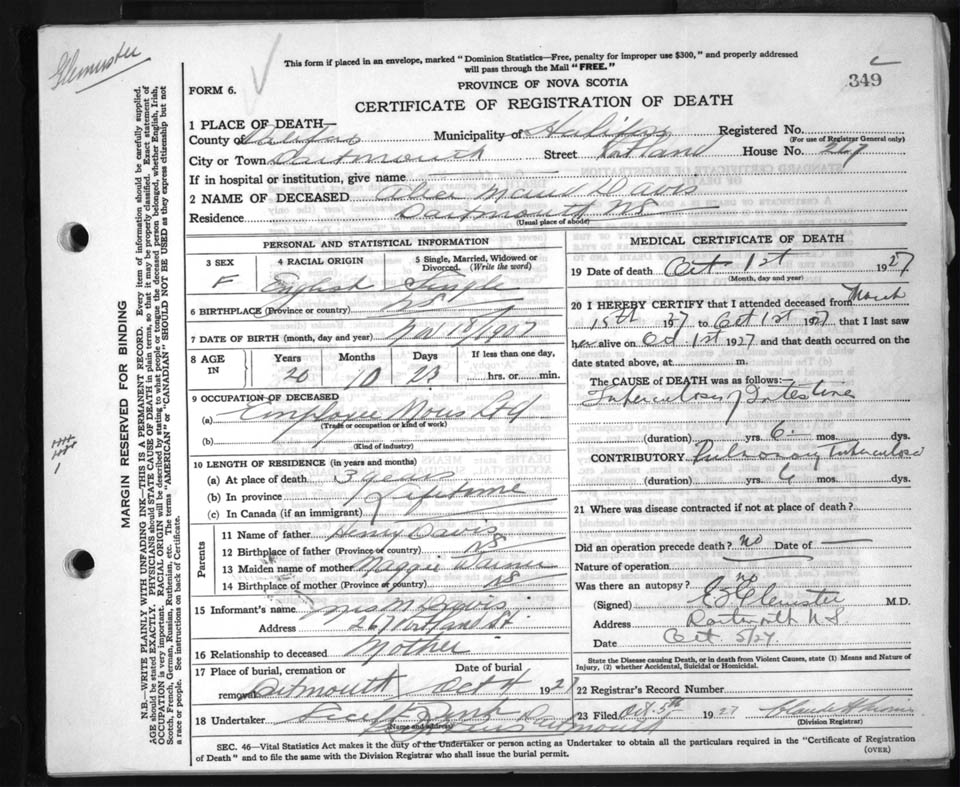 This form if placed in an envelope, marked "Dominion Statistics—Free, penalty for improper use $300," and properly addressed
will pass through the Mail "FREE."
349
FORM 6.
PROVINCE OF NOVA SCOTIA
CERTIFICATE OF REGISTRATION OF DEATH
1 PLACE OF DEATH—
County of Halifax Municipality of Halifax Registered No.
(For use of Registrar General only)
City or Town Dartmouth Street Portland House No. 267
If in hospital or institution, give name
2 NAME OF DECEASED Alice Maud Davis
Residence Dartmouth NS
(Usual place of abode)
PERSONAL AND STATISTICAL INFORMATION
3 SEX 4 RACIAL ORIGIN 5 Single, Married, Widowed or
Divorced. (Write the word)
F English Single
6 BIRTHPLACE (Province or country) NS
7 DATE OF BIRTH (month, day and year) Nov 18/1907
8 AGE IN Years Months Days If less than one day,
20 10 23 hrs. or min.
9 OCCUPATION OF DECEASED
(a) Employee
(Trade or occupation or kind of work)
(b)
(Kind of industry)
10 LENGTH OF RESIDENCE (in years and months)
(a) At place of death 3 years
(b) In province Lifetime
(c) In Canada (if an immigrant)
Parents
11 Name of father Henry Davis
12 Birthplace of father (Province or country) NS
13 Maiden name of mother Maggie
14 Birthplace of mother (Province or country) NS
15 Informant's name Mrs M Davis
Address 267 Portland St.
16 Relationship to deceased Mother
17 Place of burial, cremation or Date of burial
removal Dartmouth Oct 4 1927
18 Undertaker Dartmouth
(Name and address)
MEDICAL CERTIFICATE OF DEATH
19 Date of death Oct 1st 1927
(Month, day and year)
20 I HEREBY CERTIFY that I attended deceased from March
15th 1927 to Oct 1st 1927 that I last saw
her alive on Oct 1st 1927 and that death occurred on the
date stated above, at m.
The CAUSE of DEATH was as follows:—
Tuberculosis of Intestine
(duration) yrs. 6 mos. dys.
CONTRIBUTORY Pulmonary Tuberculosis
(duration) yrs. 6 mos. dys.
21 Where was disease contracted if not at place of death?
Did an operation precede death? no Date of —
Nature of operation
Was there an autopsy? no
(Signed) M.D.
Address Dartmouth N.S
Date Oct 5/27
State the Disease causing Death, or in death from Violent Causes, state (1) Means and Nature of
Injury, (2) whether Accidental, Suicidal or Homicidal.
22 Registrar's Record Number
23 Filed Oct 5th 1927
(Division Registrar)
SEC. 46—Vital Statistics Act makes it the duty of the Undertaker or person acting as Undertaker to obtain all the particulars required in the "Certificate of Registration
of Death" and to file the same with the Division Registrar who shall issue the burial permit.
(OVER)
MARGIN RESERVED FOR BINDING
N.B.—WRITE PLAINLY WITH UNFADING INK—THIS IS A PERMANENT RECORD. Every item of information should be carefully supplied.
AGE should be stated EXACTLY. PHYSICIANS should STATE CAUSE OF DEATH in plain terms, so that it may be properly classified. Exact statement of
OCCUPATION is very important. RACIAL ORIGIN will be described by stating to what people or tongue the deceased person belonged, whether English, Irish,
Scotch, French, German, Russian, Ruthenian, etc. The terms "AMERICAN" or "CANADIAN" SHOULD NOT BE USED as they express citizenship but not
a race or people. See instructions on back of Certificate.